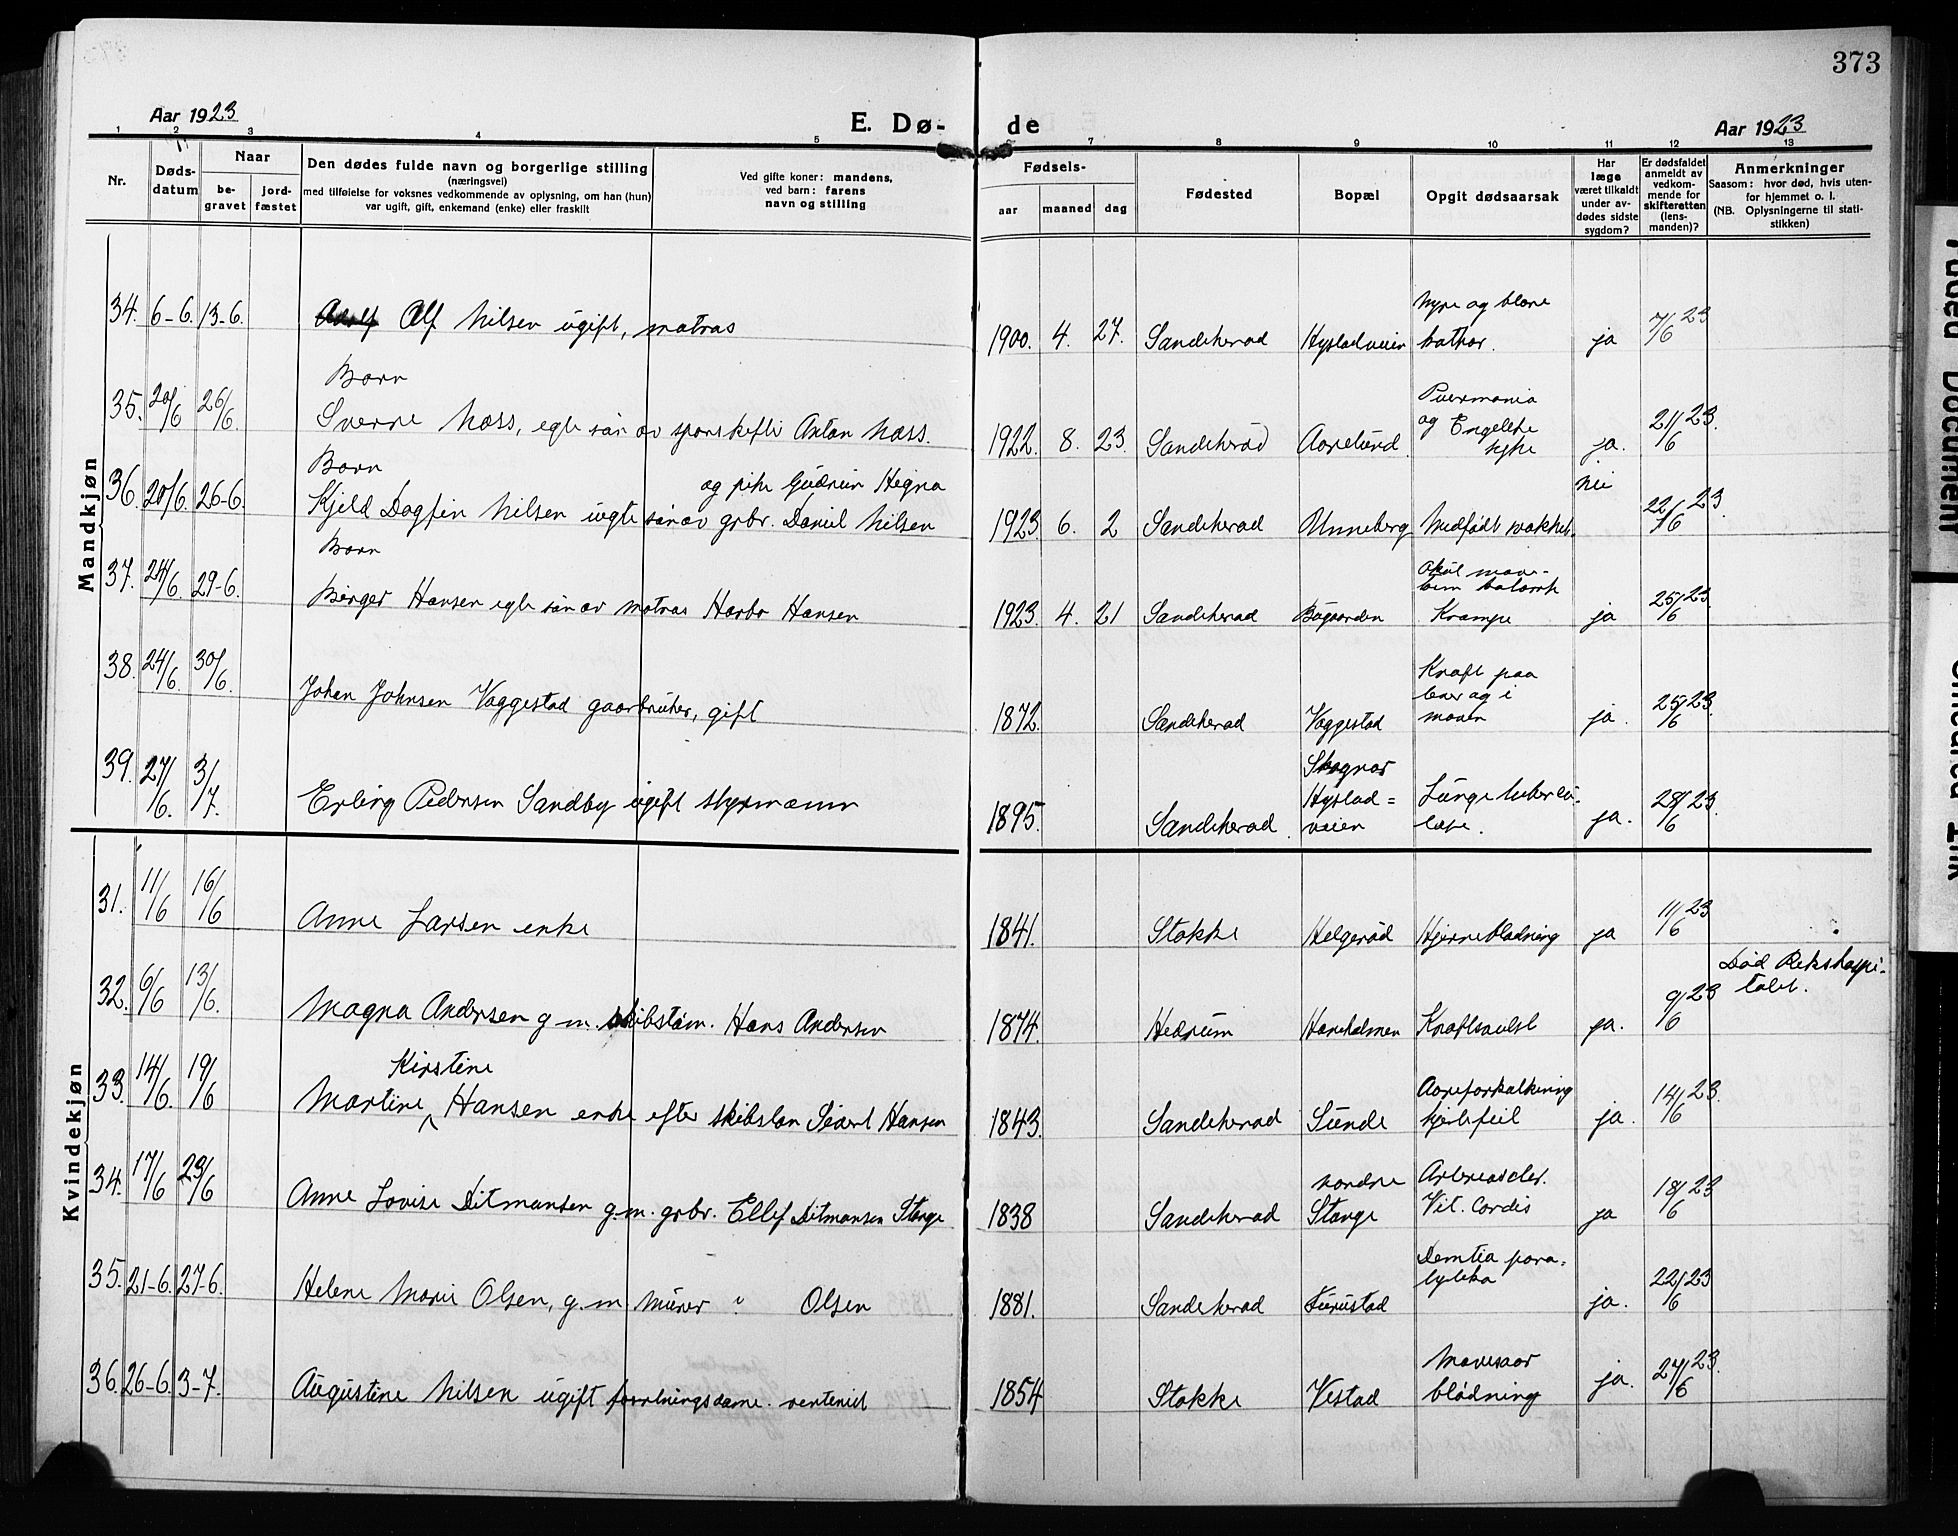 373
Aar 1923
E. Dø-
de
Aar 1923
1 2 3 4 5 6 7 8 9 10 11 12 13
Nr.
Døds-
datum
Naar
be-
gravet
jord-
fæstet
Den dødes fulde navn og borgerlige stilling
(næringsvei)
med tilføielse for voksnes vedkommende av oplysning, om han (hun)
var ugift, gift, enkemand (enke) eller fraskilt
Ved gifte koner: mandens,
ved barn: farens
navn og stilling
Fødsels-
aar maaned dag
Fødested
Bopæl
Opgit dødsaarsak
Har
læge
været tilkaldt
under av-
dødes sidste
sygdom?
Er dødsfaldet
anmeldt av
vedkom-
mende for
skifteretten
(lens-
manden)?
Anmerkninger
Saasom: hvor død, hvis uten-
for hjemmet o. l.
(NB. Oplysningerne til stati-
stikken)
Mandkjøn
34. 6-6. 13-6. Alf Nilsen ugift, matros 1900. 4. 27. Sandeherad Hystadveien Nyre og blære kathar. ja 7/6 23
Barn
35. 20/6 26/6. Sverre Næss, egte søn av sponskefli Anton Næss. 1922. 8. 23. Sandeherad Aarelund og Engelske syke ja. 21/6 23.
Barn
og pike Gudrun Hegna
36. 20/6. 26-6. Kjeld Dagfin Nilsen uegte søn av gbr. Daniel Nilsen 1923. 6. 2 Sandeherad Unneberg Medfødt svakhet. nei 22/6 23.
Barn
37. 24/6. 29-6. Birger Hansen egte søn av matros Harbo Hansen 1923. 4. 21 Sandeherad Bøgaarden Akut mave- Krampe ja 25/6 23.
38. 24/6. 30/6. Johan Johnsen Vaggestad gaardbruker, gift 1872. Sandeherad Vaggestad Kræft paa lever og i maven ja. 25/6 23.
39. 27/6. 3/7. Erling Pedersen Sandby ugift styrmann 1895. Sandeherad. Skagnar Hystad= veien Lungetuberku- lose. ja. 28/6 23.
Kvindekjøn
31. 11/6 16/6 Anne Larsen enke 1841. Stokke Helgerød Hjerneblødning ja 11/6 23
32. 6/6 13/6. Magna Andersen g.m. skibstøm. Hans Andersen 1874. Hedrum Haneholmen Kræftsvulst ja. 9/6 23 Død Rikshospi- talet.
Kirstine
33. 14/6. 19/6 Martine Hansen enke efter skibstøm Sivert Hansen 1843. Sandeherad Sunde Aareforkalkning hjertefeil ja. 14/6 23.
34. 17/6 23/6 Anne Lovise Ditmansen g.m. gbr. Ellef Ditmansen Stange 1838 Sandeherad nordre Stange Arterioscler. Vit. Cordis ja 18/6 23
35. 21-6. 27-6. Helene Marie Olsen, g.m. murer Olsen 1881. Sandeherad Furustad Demtia para= lytika ja. 22/6 23
36. 26-6. 3-7. Augustine Nilsen ugift forretningsdame. 1854 Stokke Vestad Mavesaar blødning ja. 27/6 23.
Faded Document